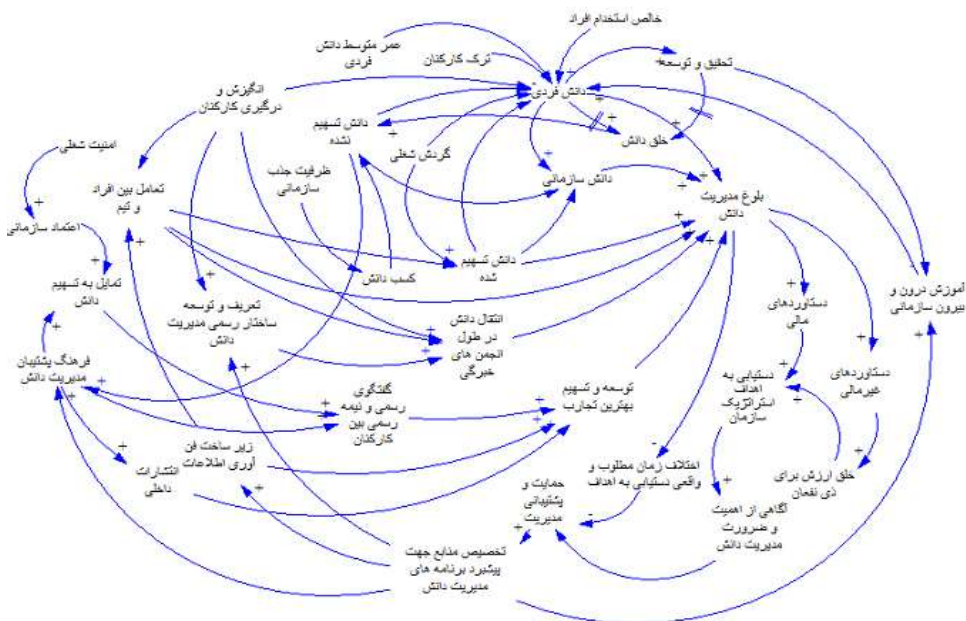 خالص استخدام افراد
عمر متوسط دانش
فردی
ترک کارکنان
تحقیق و توسعه
انگیزش و
درگیری کارکنان
دانش فردی
دانش تسهیم
نشده
گردش شغلی
خلق دانش
امنیت شغلی
ظرفیت جذب
سازمانی
دانش سازمانی
بلوغ مدیریت
دانش
تعامل بین افراد
و تیم
اعتماد سازمانی
دانش تسهیم
شده
کسب دانش
تمایل به تسهیم
دانش
تعریف و توسعه
ساختار رسمی مدیریت
دانش
انتقال دانش
در طول
انجمن های
خبرگی
دستاوردهای
مالی
آموزش درون و
بیرون سازمانی
فرهنگ پشتیبان
مدیریت دانش
گفتگوی
رسمی و نیمه
رسمی بین
کارکنان
توسعه و تسهیم
بهترین تجارب
دستیابی به
اهداف
استراتژیک
سازمان
دستاوردهای
غیرمالی
زیر ساخت فن
آوری اطلاعات
انتشارات
داخلی
اختلاف زمان مطلوب و
واقعی دستیابی به اهداف
خلق ارزش برای
ذی نفعان
حمایت و
پشتیبانی
مدیریت
آگاهی از اهمیت
و ضرورت
مدیریت دانش
تخصیص منابع جهت
پیشبرد برنامه های
مدیریت دانش